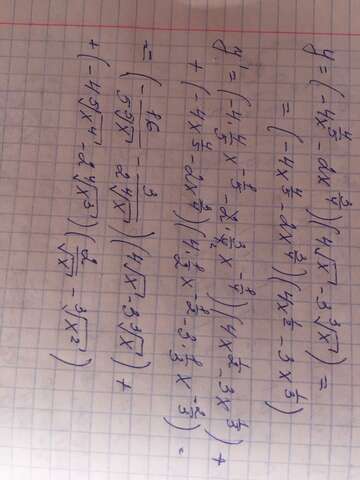 y = (-4x^{4/5} - 2x^{3/4})(4√x - 3∛x) =
= (-4x^{4/5} - 2x^{3/4})(4x^{1/2} - 3x^{1/3})
y' = (-4·4/5 x^{-1/5} - 2·3/4 x^{-1/4})(4x^{1/2} - 3x^{1/3}) +
+ (-4x^{4/5} - 2x^{3/4})(4·1/2 x^{-1/2} - 3·1/3 x^{-2/3}) =
= (-16/(5⁵√x) - 3/(2⁴√x))(4√x - 3∛x) +
+ (-4⁵√x⁴ - 2⁴√x³)(2/√x - ∛x²)